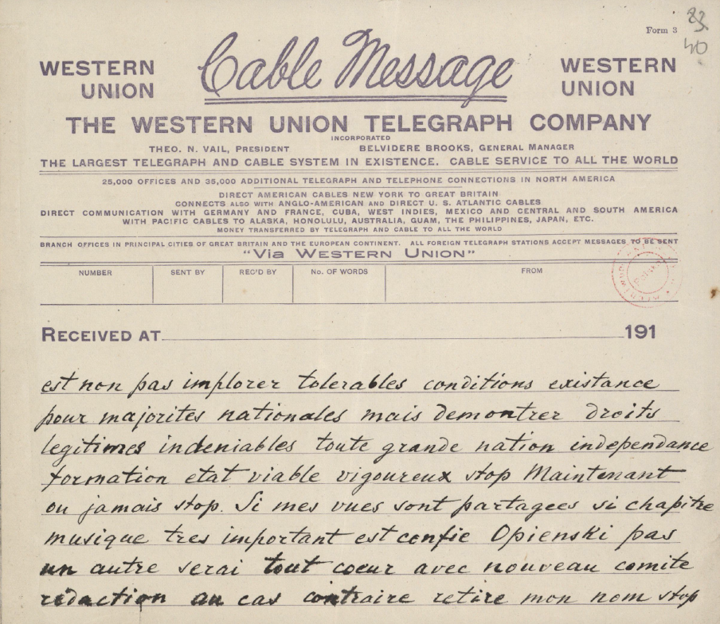 Form 3
83
40
WESTERN UNION
Cable Message
WESTERN UNION
THE WESTERN UNION TELEGRAPH COMPANY
INCORPORATED
THEO. N. VAIL, PRESIDENT BELVIDERE BROOKS, GENERAL MANAGER
THE LARGEST TELEGRAPH AND CABLE SYSTEM IN EXISTENCE. CABLE SERVICE TO ALL THE WORLD
25,000 OFFICES AND 35,000 ADDITIONAL TELEGRAPH AND TELEPHONE CONNECTIONS IN NORTH AMERICA
DIRECT AMERICAN CABLES NEW YORK TO GREAT BRITAIN
CONNECTS ALSO WITH ANGLO-AMERICAN AND DIRECT U. S. ATLANTIC CABLES
DIRECT COMMUNICATION WITH GERMANY AND FRANCE, CUBA, WEST INDIES, MEXICO AND CENTRAL AND SOUTH AMERICA
WITH PACIFIC CABLES TO ALASKA, HONOLULU, AUSTRALIA, GUAM, THE PHILIPPINES, JAPAN, ETC.
MONEY TRANSFERRED BY TELEGRAPH AND CABLE TO ALL THE WORLD
BRANCH OFFICES IN PRINCIPAL CITIES OF GREAT BRITAIN AND THE EUROPEAN CONTINENT. ALL FOREIGN TELEGRAPH STATIONS ACCEPT MESSAGES TO BE SENT
"VIA WESTERN UNION"
NUMBER SENT BY REC'D BY No. OF WORDS FROM
RECEIVED AT 191
est non pas implorer tolerables conditions existance
pour majorites nationales mais demontrer droits
legitimes indeniables toute grande nation independance
formation etat viable vigoureux stop Maintenant
ou jamais stop. Si mes vues sont partagees si chapitre
musique tres important est confie Opienski pas
un autre serai tout coeur avec nouveau comite
redaction au cas contraire retire mon nom stop